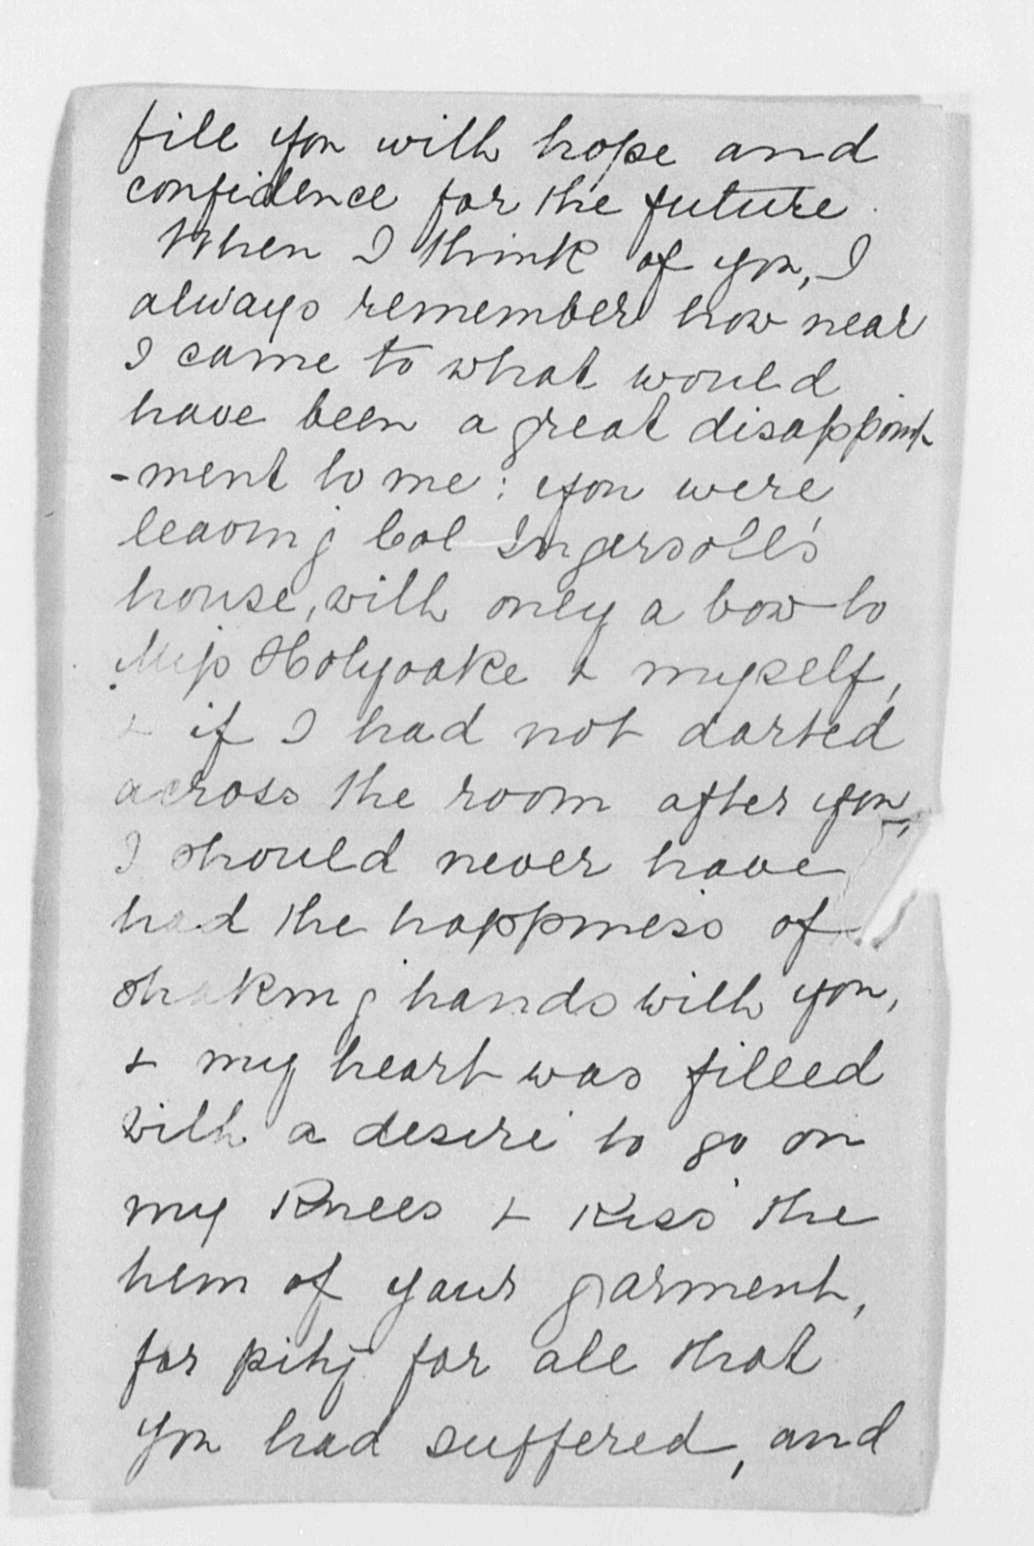 fill you with hope and
confidence for the future.
When I think of you, I
always remember how near
I came to what would
have been a great disappoint
-ment to me: you were
leaving Col Ingersoll's
house, with only a bow to
Miss Holyoake & myself,
& if I had not darted
across the room after you,
I should never have
had the happiness of
shaking hands with you,
& my heart was filled
with a desire to go on
my knees & kiss the
hem of your garment,
for pity for all that
you had suffered, and